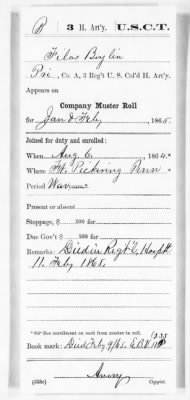 B 3 H. Art'y. U.S.C.T.
Filas Boylin
Pri, Co. A, 3 Reg't U. S. Col'd H. Art'y.
Appears on
Company Muster Roll
for Jan & Feby, 1865.
Joined for duty and enrolled:
When Aug 6, 1864.*
Where Ft. Pickering Tenn *
Period years.*
Present or absent
Stoppage, $ 100 for
Due Gov't $ 100 for
Remarks: Died in Regt'l Hospt
11. Feby 1865.
*See enrollment on card from muster-in roll.
Book mark: Died Feby 9/65.
Avery
(358c) Copyist.